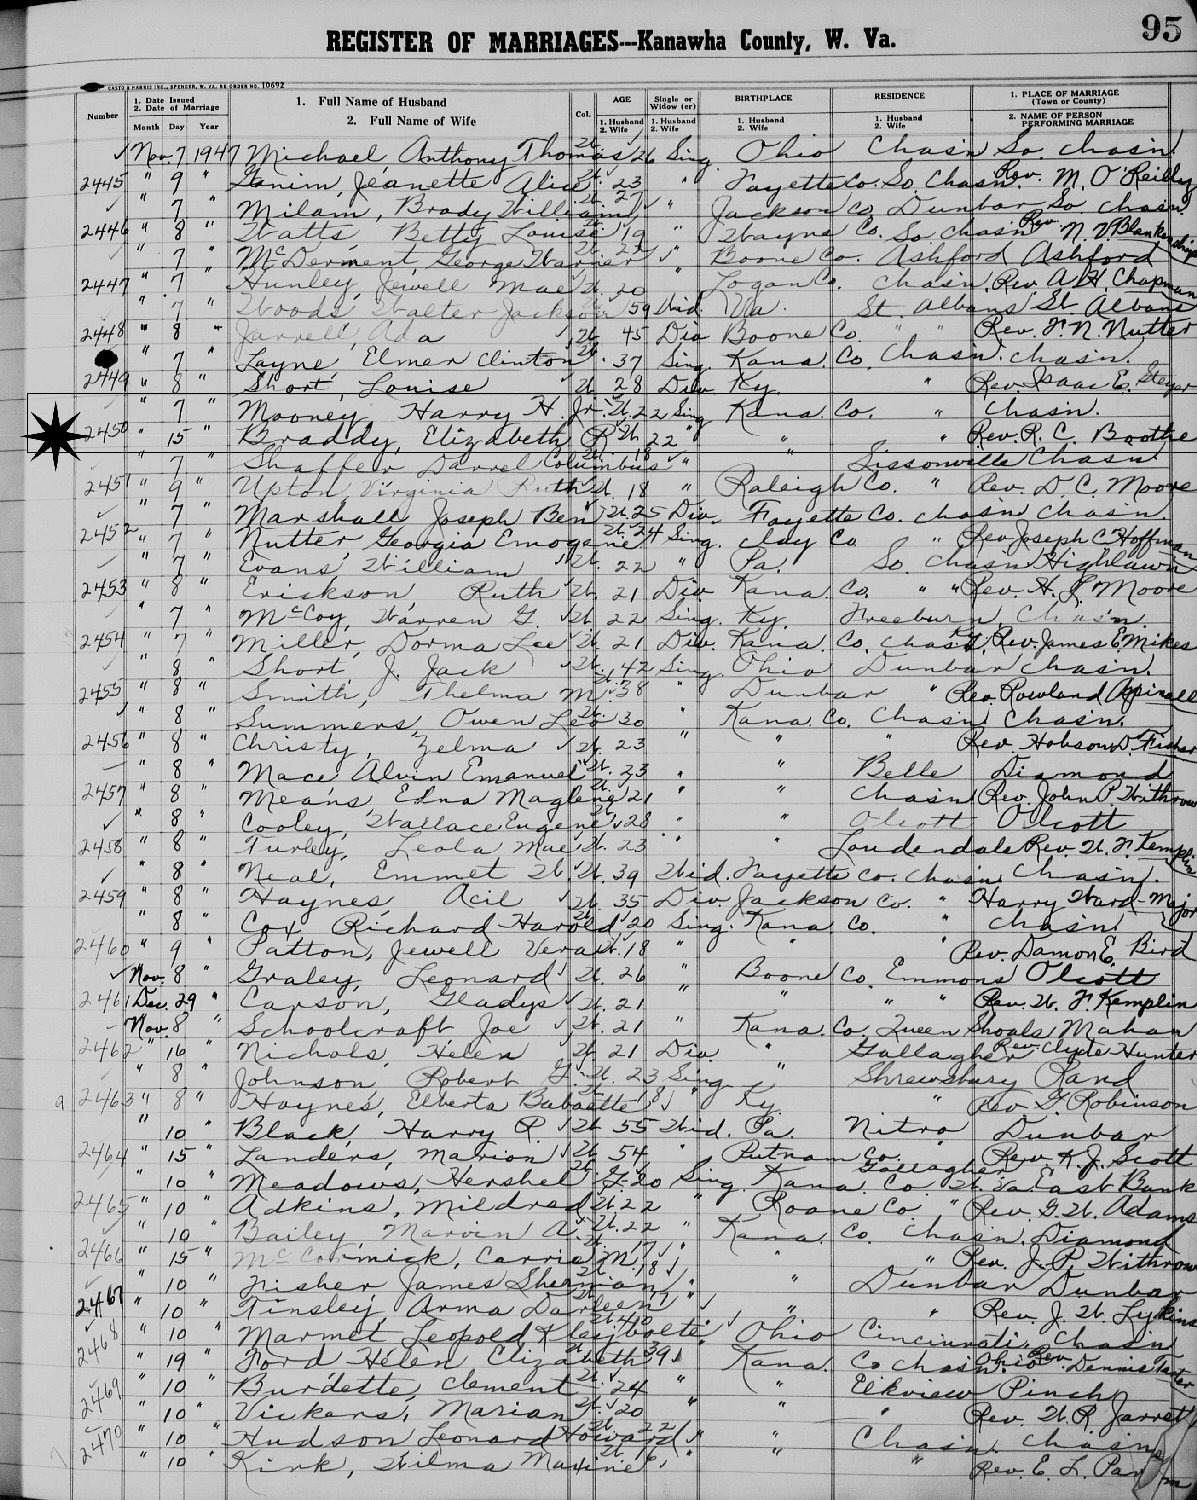 95
REGISTER OF MARRIAGES---Kanawha County, W. Va.
CASTO & HARRIS INC., SPENCER, W. VA. RE-ORDER NO. 10692
Number
1. Date Issued
2. Date of Marriage
Month Day Year
1. Full Name of Husband
2. Full Name of Wife
Col.
AGE
1. Husband
2. Wife
Single or Widow (er)
1. Husband
2. Wife
BIRTHPLACE
1. Husband
2. Wife
RESIDENCE
1. Husband
2. Wife
1. PLACE OF MARRIAGE (Town or County)
2. NAME OF PERSON PERFORMING MARRIAGE
Nov. 7 1947 Michael Anthony Thomas W. 26 Sing. Ohio Chasn So. Chasn
2445 " 9 " Ganim, Jeanette Alice W. 23 " Fayette Co. So. Chasn. Rev. M. O'Reilly
" 7 Milam, Brady William W. 27 " Jackson Co. Dunbar So. Chasn.
2446 " 8 " Watts, Betty Louise W. 19 " Wayne Co. So Chasn Rev. N. V. Blankenship
" 7 " McDerment, George Warner W. " Boone Co. Ashford Ashford
2447 " 7 Hunley, Jewell Mae W. 20 " Logan Co. Chasn. Rev. A. H. Chapman
" 7 " Woods Walter Jackson 59 Wid. Va. St. Albans St. Albans
2448 " 8 " Jarrell, Ada W. 45 Div Boone Co. " " Rev. F. N. Nutter
" 7 " Layne, Elmer Clinton W. 37 Sing. Kana. Co. Chasn. Chasn.
2449 " 8 " Short, Louise W. 28 Div. Ky. " Rev. Isaac E. Steyer
" 7 " Mooney Harry H. Jr. W. 22 Sing Kana Co. " Chasn.
2450 " 15 " Braddy, Elizabeth R. W. 22 " " " Rev. R. C. Boothe
" 7 " Shaffer Darrel Columbus W. 18 " Sissonville Chasn
2451 " 9 " Upton, Virginia Ruth W. 18 " Raleigh Co. " Rev. D. C. Moore
" 7 " Marshall Joseph Ben W. 25 Div. Fayette Co. Chasn Chasn.
2452 " 7 " Nutter, Georgia Emogene W. 24 Sing. Clay Co " Rev Joseph C Hoffman
" 7 " Evans William W. 22 " Pa. So. Chasn Highlawn
2453 " 8 " Erickson, Ruth W. 21 Div Kana. Co. " " Rev. H. L. Moore
" 7 " McCoy, Warren G. W. 22 Sing. Ky. Freeburn, Chasn.
2454 " 7 " Miller, Dorma Lee W. 21 Div. Kana. Co. Chasn, Rev. James E Mikes
" 8 " Short, J. Jack W. 42 Sing. Ohio Dunbar Chasn.
2455 " 8 " Smith, Thelma M. 38 " Dunbar " Rev. Rowland Aspinall
" 8 " Summers, Owen Leo W. 30 Kana. Co. Chasn Chasn.
2456 " 8 " Christy, Zelma W. 23 " " " Rev. Hobson D. Fisher
" 8 " Mace Alvin Emanuel W. 23 " " Belle Diamond
2457 " 8 " Means, Edna Maglene W. 21 " " Chasn Rev. John P. Withrow
" 8 " Cooley, Wallace Eugene W. 28 " " Olcott Olcott
2458 " 8 " Turley, Leola Mae W. 23 " " Loudendale Rev. W. F. Kemplin
" 8 " Neal, Emmet W. W. 39 Wid. Fayette Co. Chasn Chasn.
2459 " 8 " Haynes, Acil W. 35 Div. Jackson Co. " Harry Ward-Major
" 8 " Cox, Richard Harold, W. 20 Sing. Kana Co. " Chasn
2460 " 9 " Patton, Jewell Vera W. 18 " " " Rev. Damon E. Bird
Nov. 8 " Graley, Leonard W. 26 " Boone Co. Emmons Olcott
2461 Dec. 29 " Carson, Gladys W. 21 " " " " Rev. W. F. Kemplin
Nov. 8 " Schoolcraft Joe W. 21 " Kana. Co. Queen Shoals Mahan
2462 " 16 " Nichols, Helen W. 21 Div. " Gallagher Rev. Clyde Hunter
" 8 " Johnson, Robert G. W. 23 Sing. " Shrewsbury Rand
2463 " 8 " Haynes, Elberta Babsette 18 " Ky. " Rev G. Robinson
" 10 " Black, Harry R. W. 55 Wid. Pa. Nitro Dunbar
2464 " 15 " Landers, Marion W. 54 " Putnam Co. " Rev. K. J. Scott
" 10 " Meadows, Hershel F. W. 20 Sing. Kana. Co. Gallagher W. Va. East Bank
2465 " 10 " Adkins, Mildred W. 22 " Roane Co. " Rev. G. W. Adams
" 10 Bailey, Marvin A. W. 22 " Kana. Co. Chasn. Diamond
2466 " 15 " McCormick, Carrie M. W. 17 " " " Rev. J. P. Withrow
" 10 " Fisher, James Sherman W. 18 " " Dunbar Dunbar
2467 " 10 " Tinsley, Arma Darleen W. 17 " " " Rev. J. W. Lykins
" 10 " Marmet Leopold Klaybolte W. 40 " Ohio Cincinnati, Ohio Chasn
2468 " 19 " Ford Helen Elizabeth W. 39 Kana. Co Chasn. Rev. Dennis
" 10 " Burdette, Clement W. 24 " " Elkview Pinch
2469 " 10 " Vickers, Marian W. 20 " " " Rev. W. R. Jarrett
" 10 " Hudson Leonard Howard W. 22 " " Chasn. Chasn.
2470 " 10 Kirk, Wilma Maxine W. " " " Rev. E. L.